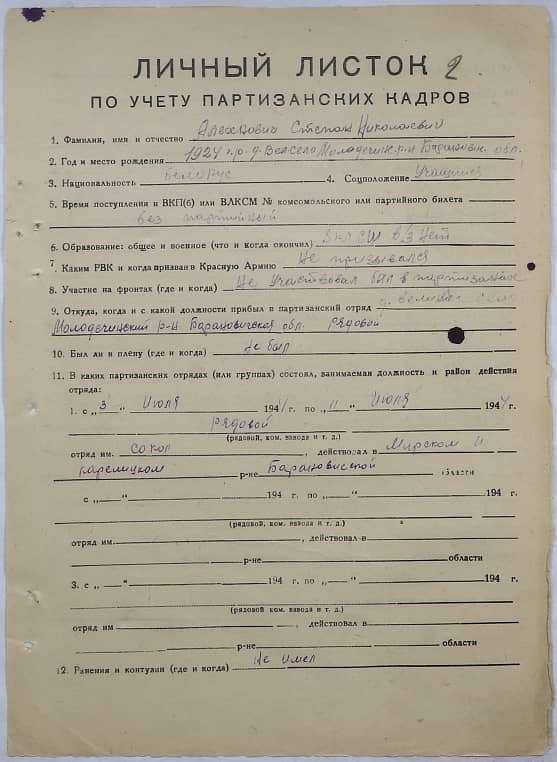 ЛИЧНЫЙ ЛИСТОК 2
ПО УЧЕТУ ПАРТИЗАНСКИХ КАДРОВ
1. Фамилия, имя и отчество Алехнович Степан Николаевич
2. Год и место рождения 1924 г.р. д. Велсело Молодечн. р-н Баранович. обл.
3. Национальность белорус 4. Соцположение Учащийся
5. Время поступления в ВКП(б) или ВЛКСМ № комсомольского или партийного билета
без партийный
6. Образование: общее и военное (что и когда окончил) в/з нет
7. Каким РВК и когда призван в Красную Армию Не призывался
8. Участие на фронтах (где и когда) Не Участвовал был в партизанах
9. Откуда, когда и с какой должности прибыл в партизанский отряд д.
Молодечинский р-н Барановичская обл. Рядовой
10. Был ли в плену (где и когда) Не был
11. В каких партизанских отрядах (или группах) состоял, занимаемая должность и район действия
отряда:
1. с „3“ Июля 194 г. по „11“ Июля 1944 г.
Рядовой
(рядовой, ком. взвода и т. д.)
отряд им. сокол, действовал в Мирском и
карелицком р-не Барановисской области
с „ “ 194 г. по „ “ 194 г.
(рядовой, ком. взвода и т. д.)
отряд им. , действовал в
р-не области
3. с „ “ 194 г. по „ “ 194 г.
(рядовой, ком. взвода и т. д.)
отряд им. , действовал в
р-не области
12. Ранения и контузии (где и когда) Не имел